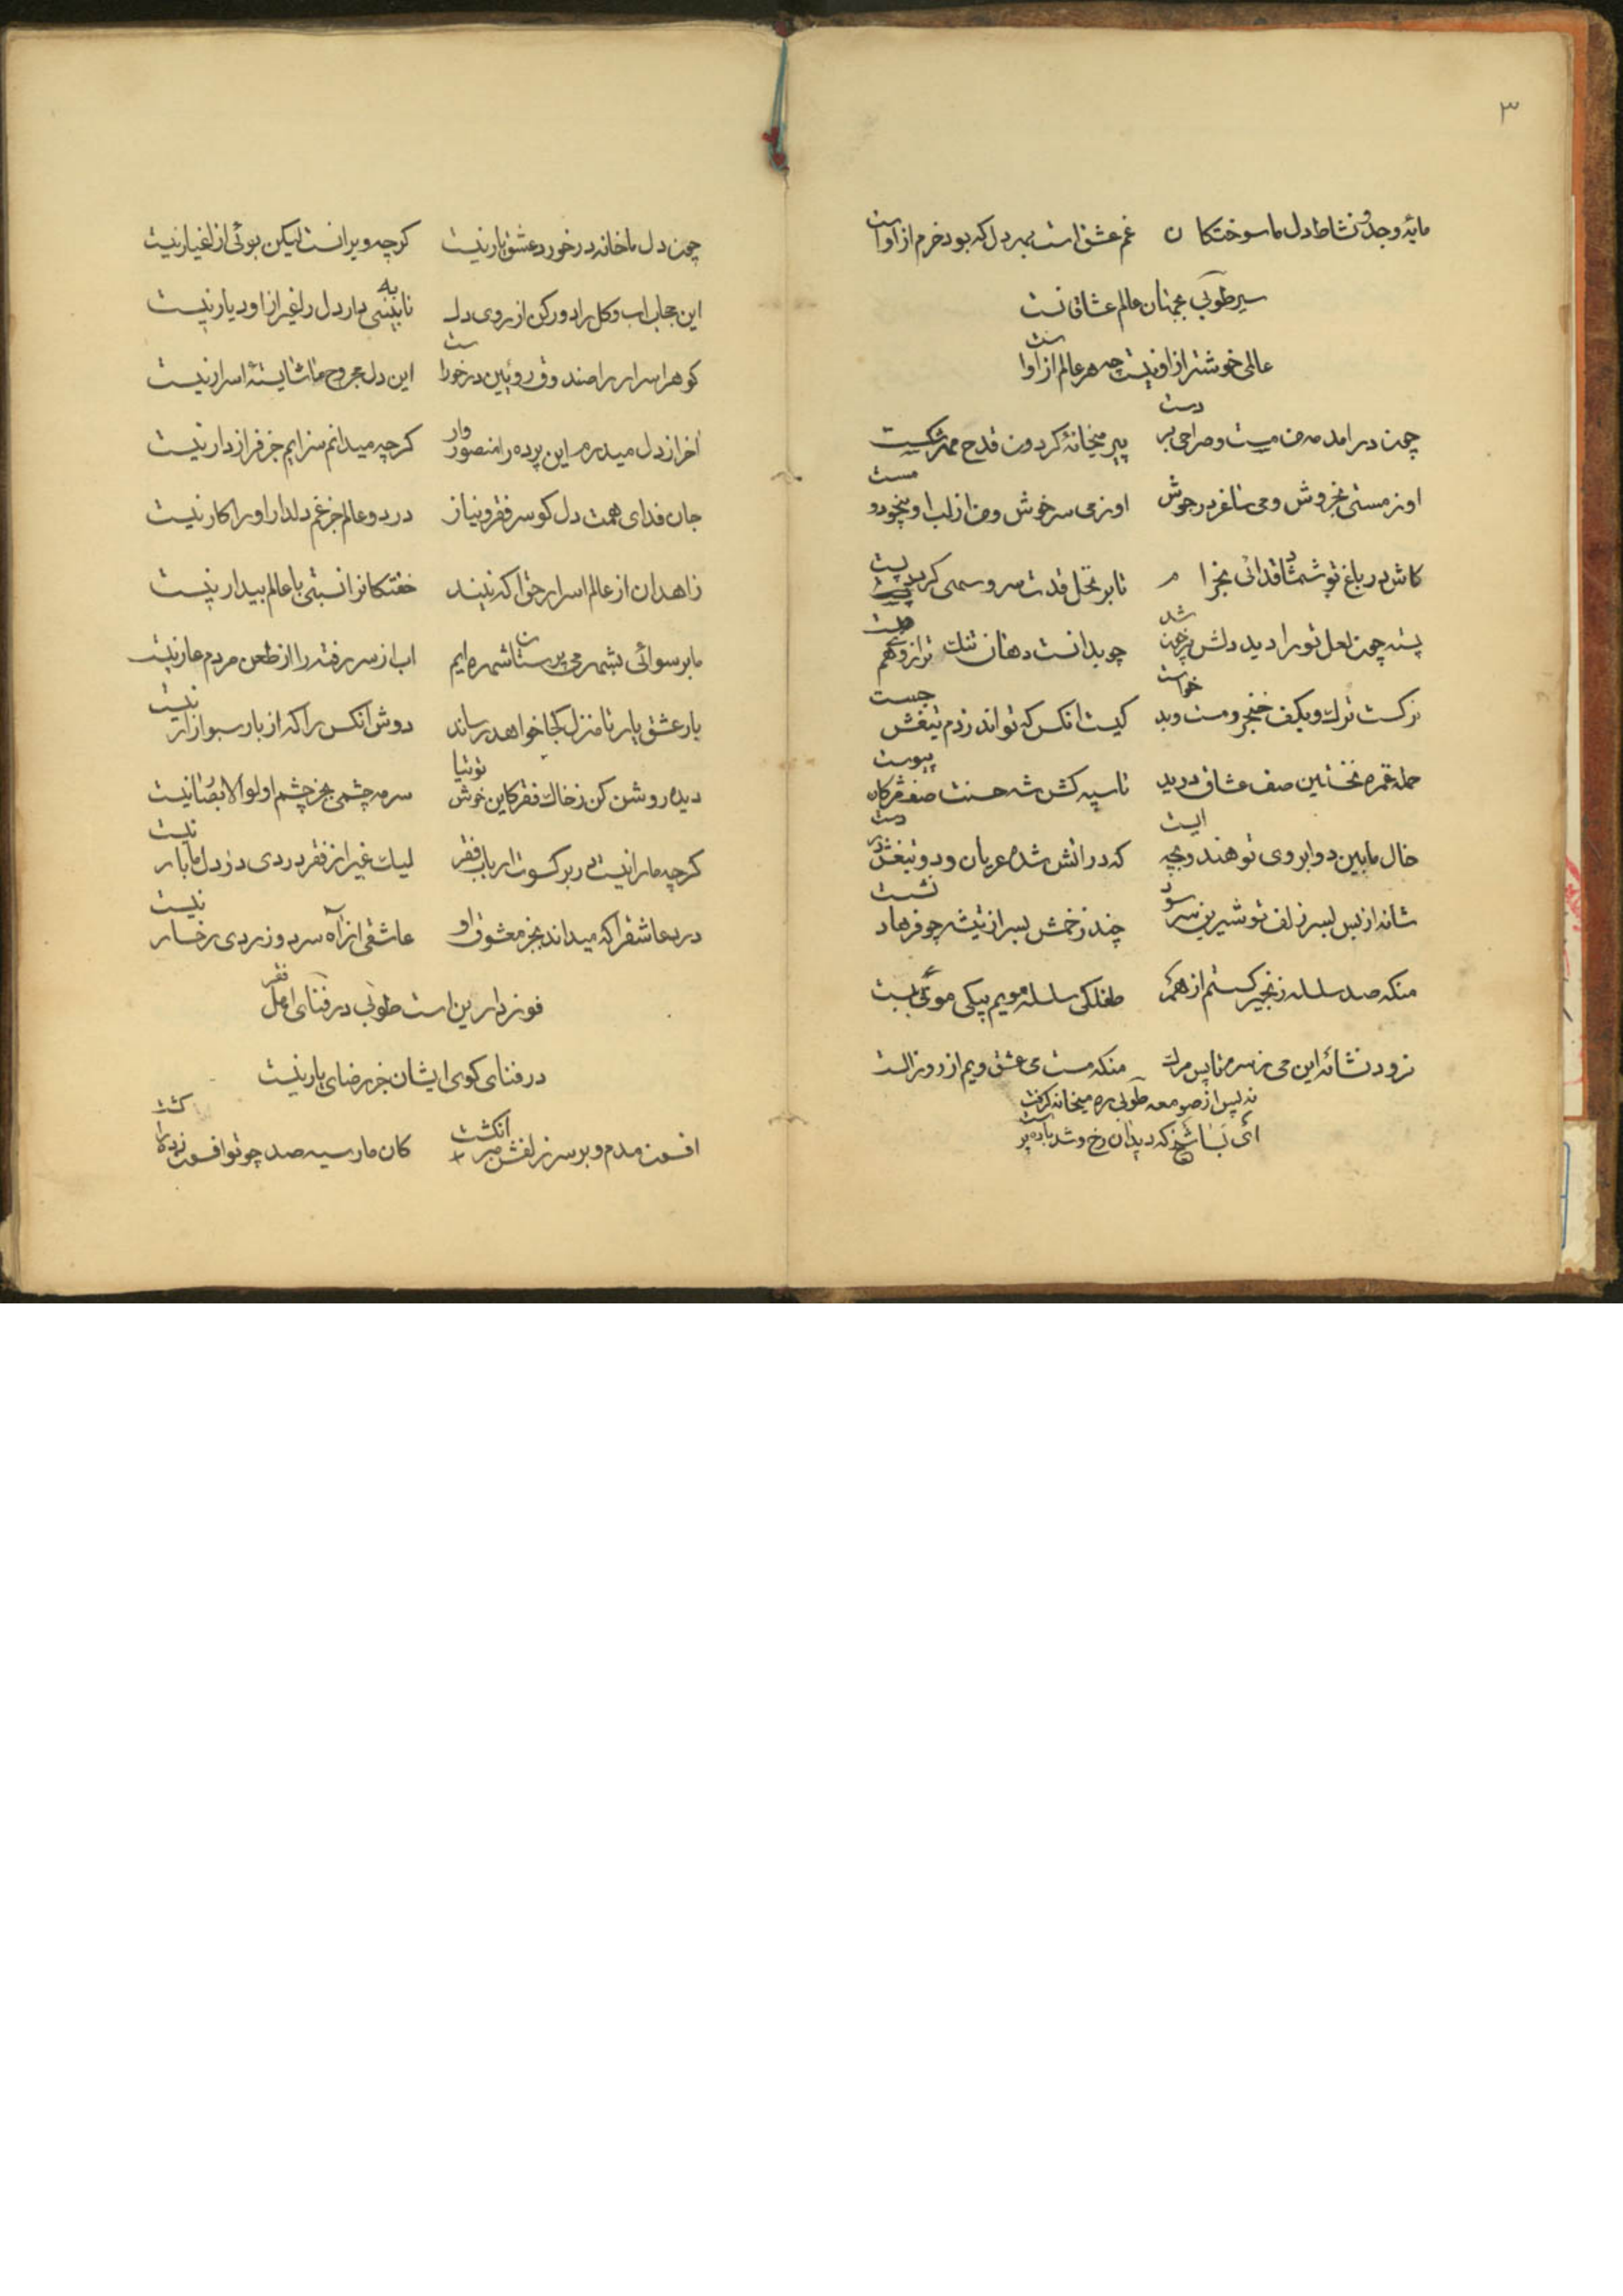 ۳
مایهٔ وجد و نشاط دل ما سوختگان غم عشق است بهر دل که بود خرم از اوست
سیر طوبی بجهان عالم عشاقانست
عالمی خوشتر از او نیست چه هر عالم از اوست
چون درامد مه من مست و صراحی بر دست پیر میخانهٔ کردون قدح مهر شکست
او ز مستی بخروش و می ساغر در جوش او ز می سرخوش و من از لب او بیخود و مست
کاش در باغ تو شمشاد قدانی بخرام تا بر نخل قدت سرو سهی کردد پست
پسته چون لعل تو را دید دلش پرخون شد چو بدانست دهان تنک تر از وهم
نرکست ترک و بکف خنجر و مست و بد خواست کیست انکس که تواند ز دم تیغش جست
حمله غمزه نخستین صف عشاق درید تا سپه کش شه حسنت صف مژکان پیوست
خال مابین دو ابروی تو هندو بچه ایست که در اتش شده عریان و دو تیغش در دست
شانه از بس بسر زلف تو شیرین سر سود چند زخمش بسر از تیشه چو فرهاد نشست
منکه صد سلسله زنجیر کسستم از هم طفلکی سلسله مویم بیکی موئی بست
نرود نشائه این می ز سرم تا پس مرک منکه مست می عشق ویم از روز الست
نه پس از صومعه طوبی ره میخانه کرفت
ای بسا شیخ که دید ان رخ و شد باده پرست
چون دل ما خانه در خورد عشق یار نیست کرچه ویرانست لیکن بوئی از اغیار نیست
این حجاب اب و کل را دور کن از روی دل تا به بینی دار دل را غیر از او دیار نیست
کوهر اسرار را صندوق روئین در خور است این دل مجروح ما شایستهٔ اسرار نیست
اخر از دل میدرم این پرده را منصور وار کرچه میدانم سزایم جز فراز دار نیست
جان فدای همت دل کو سر فقر و نیاز در دو عالم جز غم دلدار او را کار نیست
زاهدان از عالم اسرار حق اکه نیند خفتکانرا نسبتی با عالم بیدار نیست
ما برسوائی بشهر می پرستان شهره ایم اب از سر رفته را از طعن مردم عار نیست
بار عشق یار تا منزل کجا خواهد رساند دوش انکس را که از بار سبو ازار نیست
دیده روشن کن ز خاک فقر کاین خوش توتیا سرمه چشمی بجز چشم اولو الابصار نیست
کرچه ما را نیست در بر کسوت ارباب فقر لیک غیر از فقر دردی در دل ما بار نیست
درد عاشق را که میداند بجز معشوق او عاشقی از آه سرد و زردی رخسار نیست
فوز دارین است طوبی در فنای اهل فقر
در فنای کوی ایشان جز رضای یار نیست
افسون مدم و بر سر زلفش مبر انکشت کان مار سیه صد چو تو افسون زده را کشت